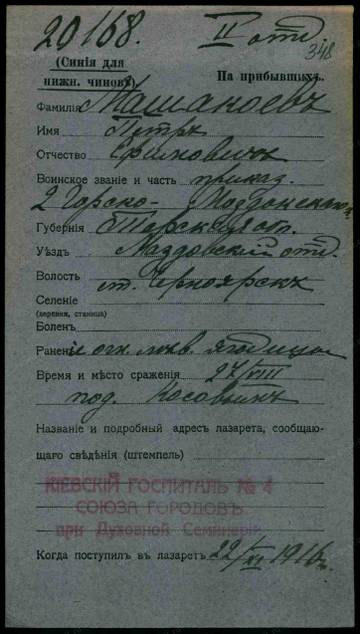 20168. II отд.
348
(Синія для
нижн. чиновъ). На прибывшихъ.
Фамилія Машакоевъ
Имя Петръ
Отчество Ефимовичъ
Воинское званіе и часть приказ.
2 Горско-Моздокскаго
Губернія Терская обл.
Уѣздъ Маздовскій отд.
Волость ст. Черноярскъ
Селеніе
(деревня, станица)
Боленъ
Раненіе огн. лѣв. ягодицы
Время и мѣсто сраженія 27/VIII
под. Косовымъ
Названіе и подробный адресъ лазарета, сообщаю-
щаго свѣдѣнія (штемпель)
КІЕВСКІЙ ГОСПИТАЛЬ № 4
СОЮЗА ГОРОДОВЪ
при Духовной Семинаріи
Когда поступилъ въ лазаретъ 22/XI 1916г.